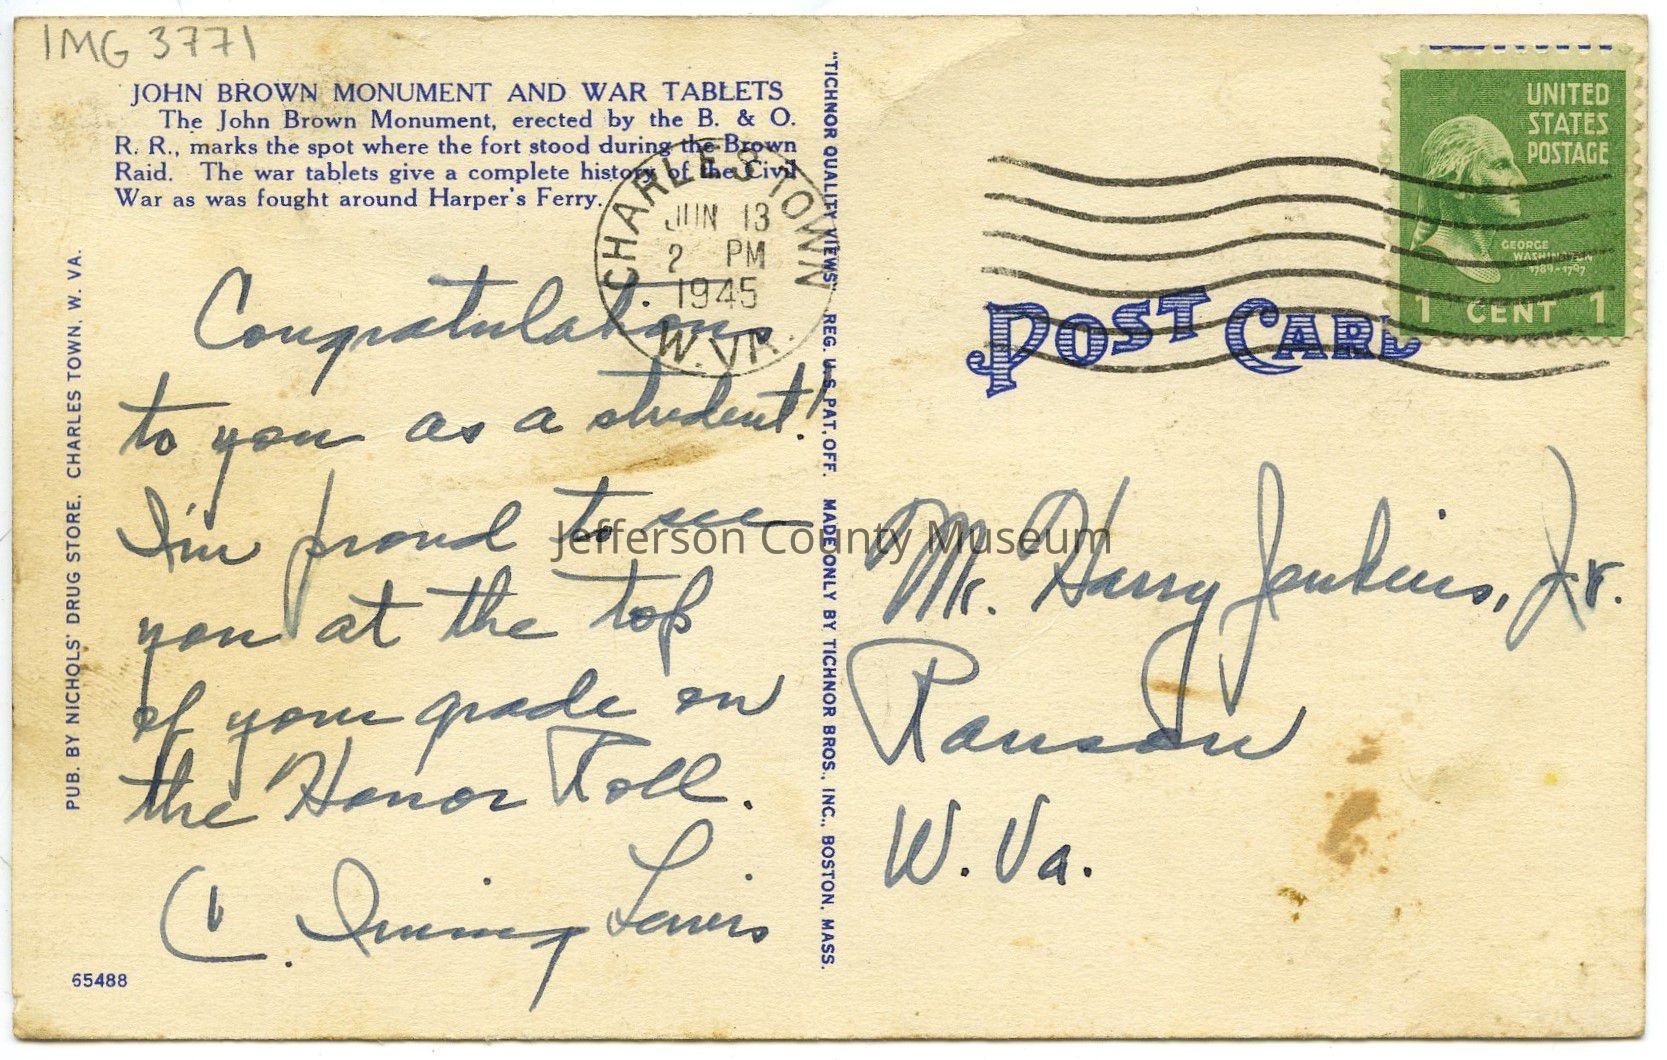 IMG 3771
JOHN BROWN MONUMENT AND WAR TABLETS
The John Brown Monument, erected by the B. & O.
R. R., marks the spot where the fort stood during the Brown
Raid. The war tablets give a complete history of the Civil
War as was fought around Harper's Ferry.
CHARLES TOWN
JUN 13
2 PM
1945
W. VA.
Congratulations
to you as a student!
I'm proud to see
you at the top
of your grade on
the Honor Roll.
C. Irving Lewis
65488
PUB. BY NICHOLS' DRUG STORE, CHARLES TOWN, W. VA.
"TICHNOR QUALITY VIEWS" REG. U.S. PAT. OFF. MADE ONLY BY TICHNOR BROS., INC., BOSTON, MASS.
UNITED
STATES
POSTAGE
GEORGE
WASHINGTON
1789-1797
1 CENT 1
POST CARD
Mr. Harry Jenkins, Jr.
Ranson
W. Va.
Jefferson County Museum